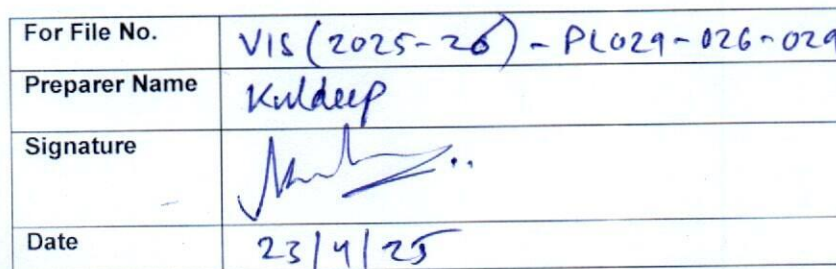 For File No. VIS (2025-26) - PL029-026-029
Preparer Name Kuldeep
Signature
Date 23/4/25